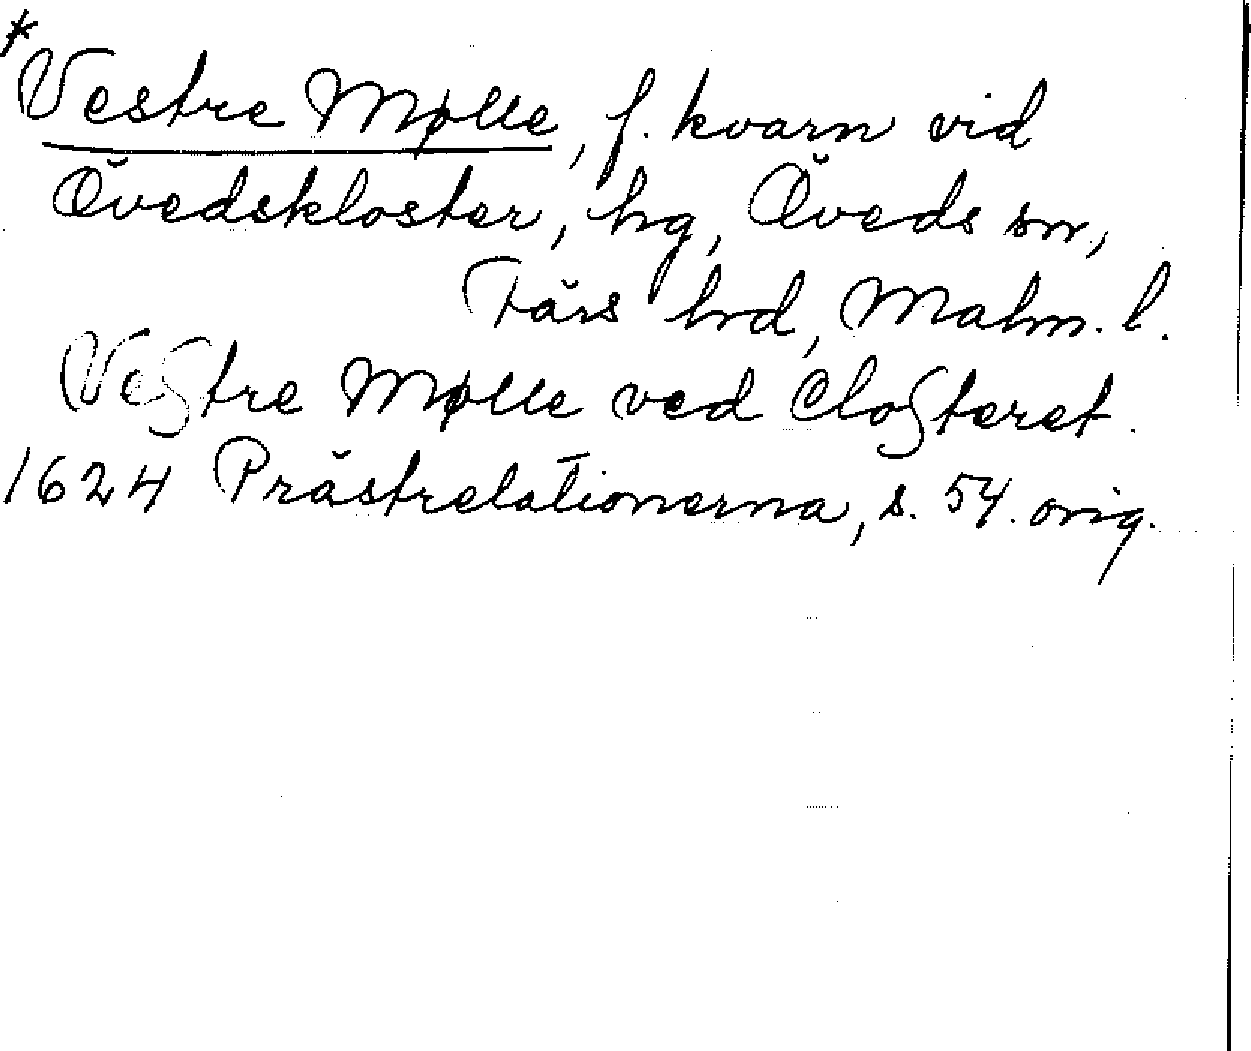 *Vestre Mølle, f. kvarn vid
Övedskloster, hg, Öveds sn,
Färs hrd, Malm. l.
Vestre Mølle ved Closteret.
1624 Prästrelationerna, s. 54. orig.